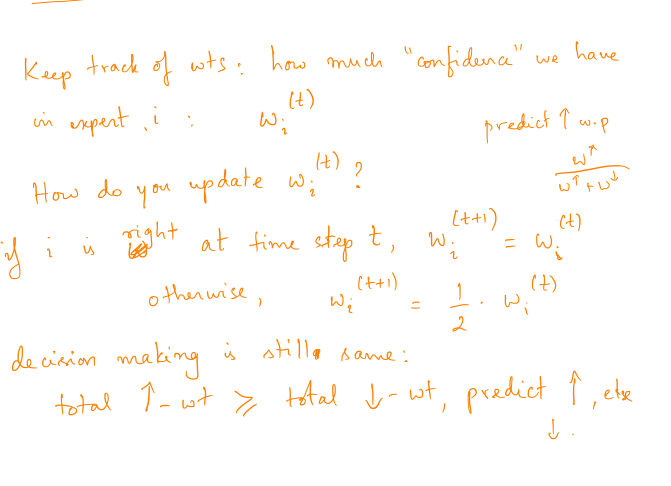 Keep track of wts: how much "confidence" we have
in expert, i : wᵢ⁽ᵗ⁾
predict ↑ w.p
w↑ / (w↑ + w↓)
How do you update wᵢ⁽ᵗ⁾ ?
if i is right at time step t, wᵢ⁽ᵗ⁺¹⁾ = wᵢ⁽ᵗ⁾
otherwise, wᵢ⁽ᵗ⁺¹⁾ = 1/2 · wᵢ⁽ᵗ⁾
decision making is still same:
total ↑-wt ≥ total ↓-wt, predict ↑, else
↓.